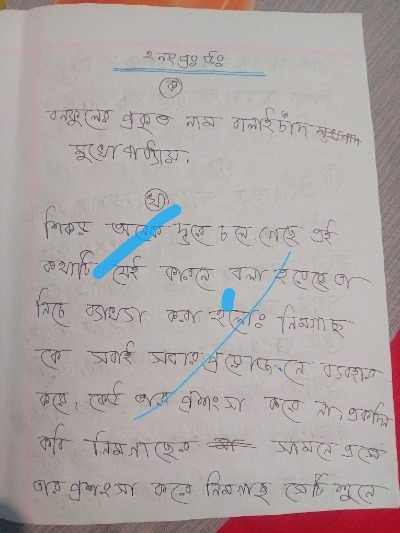 ২নং প্রঃ উঃ
ক
বনফুলের প্রকৃত নাম বলাইচাঁদ
মুখোপাধ্যায়.
খ
শিকর অনেক দূরে চলে গেছে এই
কথাটি যেই কারনে বলা হয়েছে তা
নিচে ব্যাখ্যা করা হলোঃ নিমগাছ
কে সবাই সবার প্রয়োজনে ব্যবহার
করে, কেউ তার প্রশংসা করে না, একদিন
কবি নিমগাছের সামনে এসে
তার প্রশংসা করে নিমগাছ সেটি শুনে